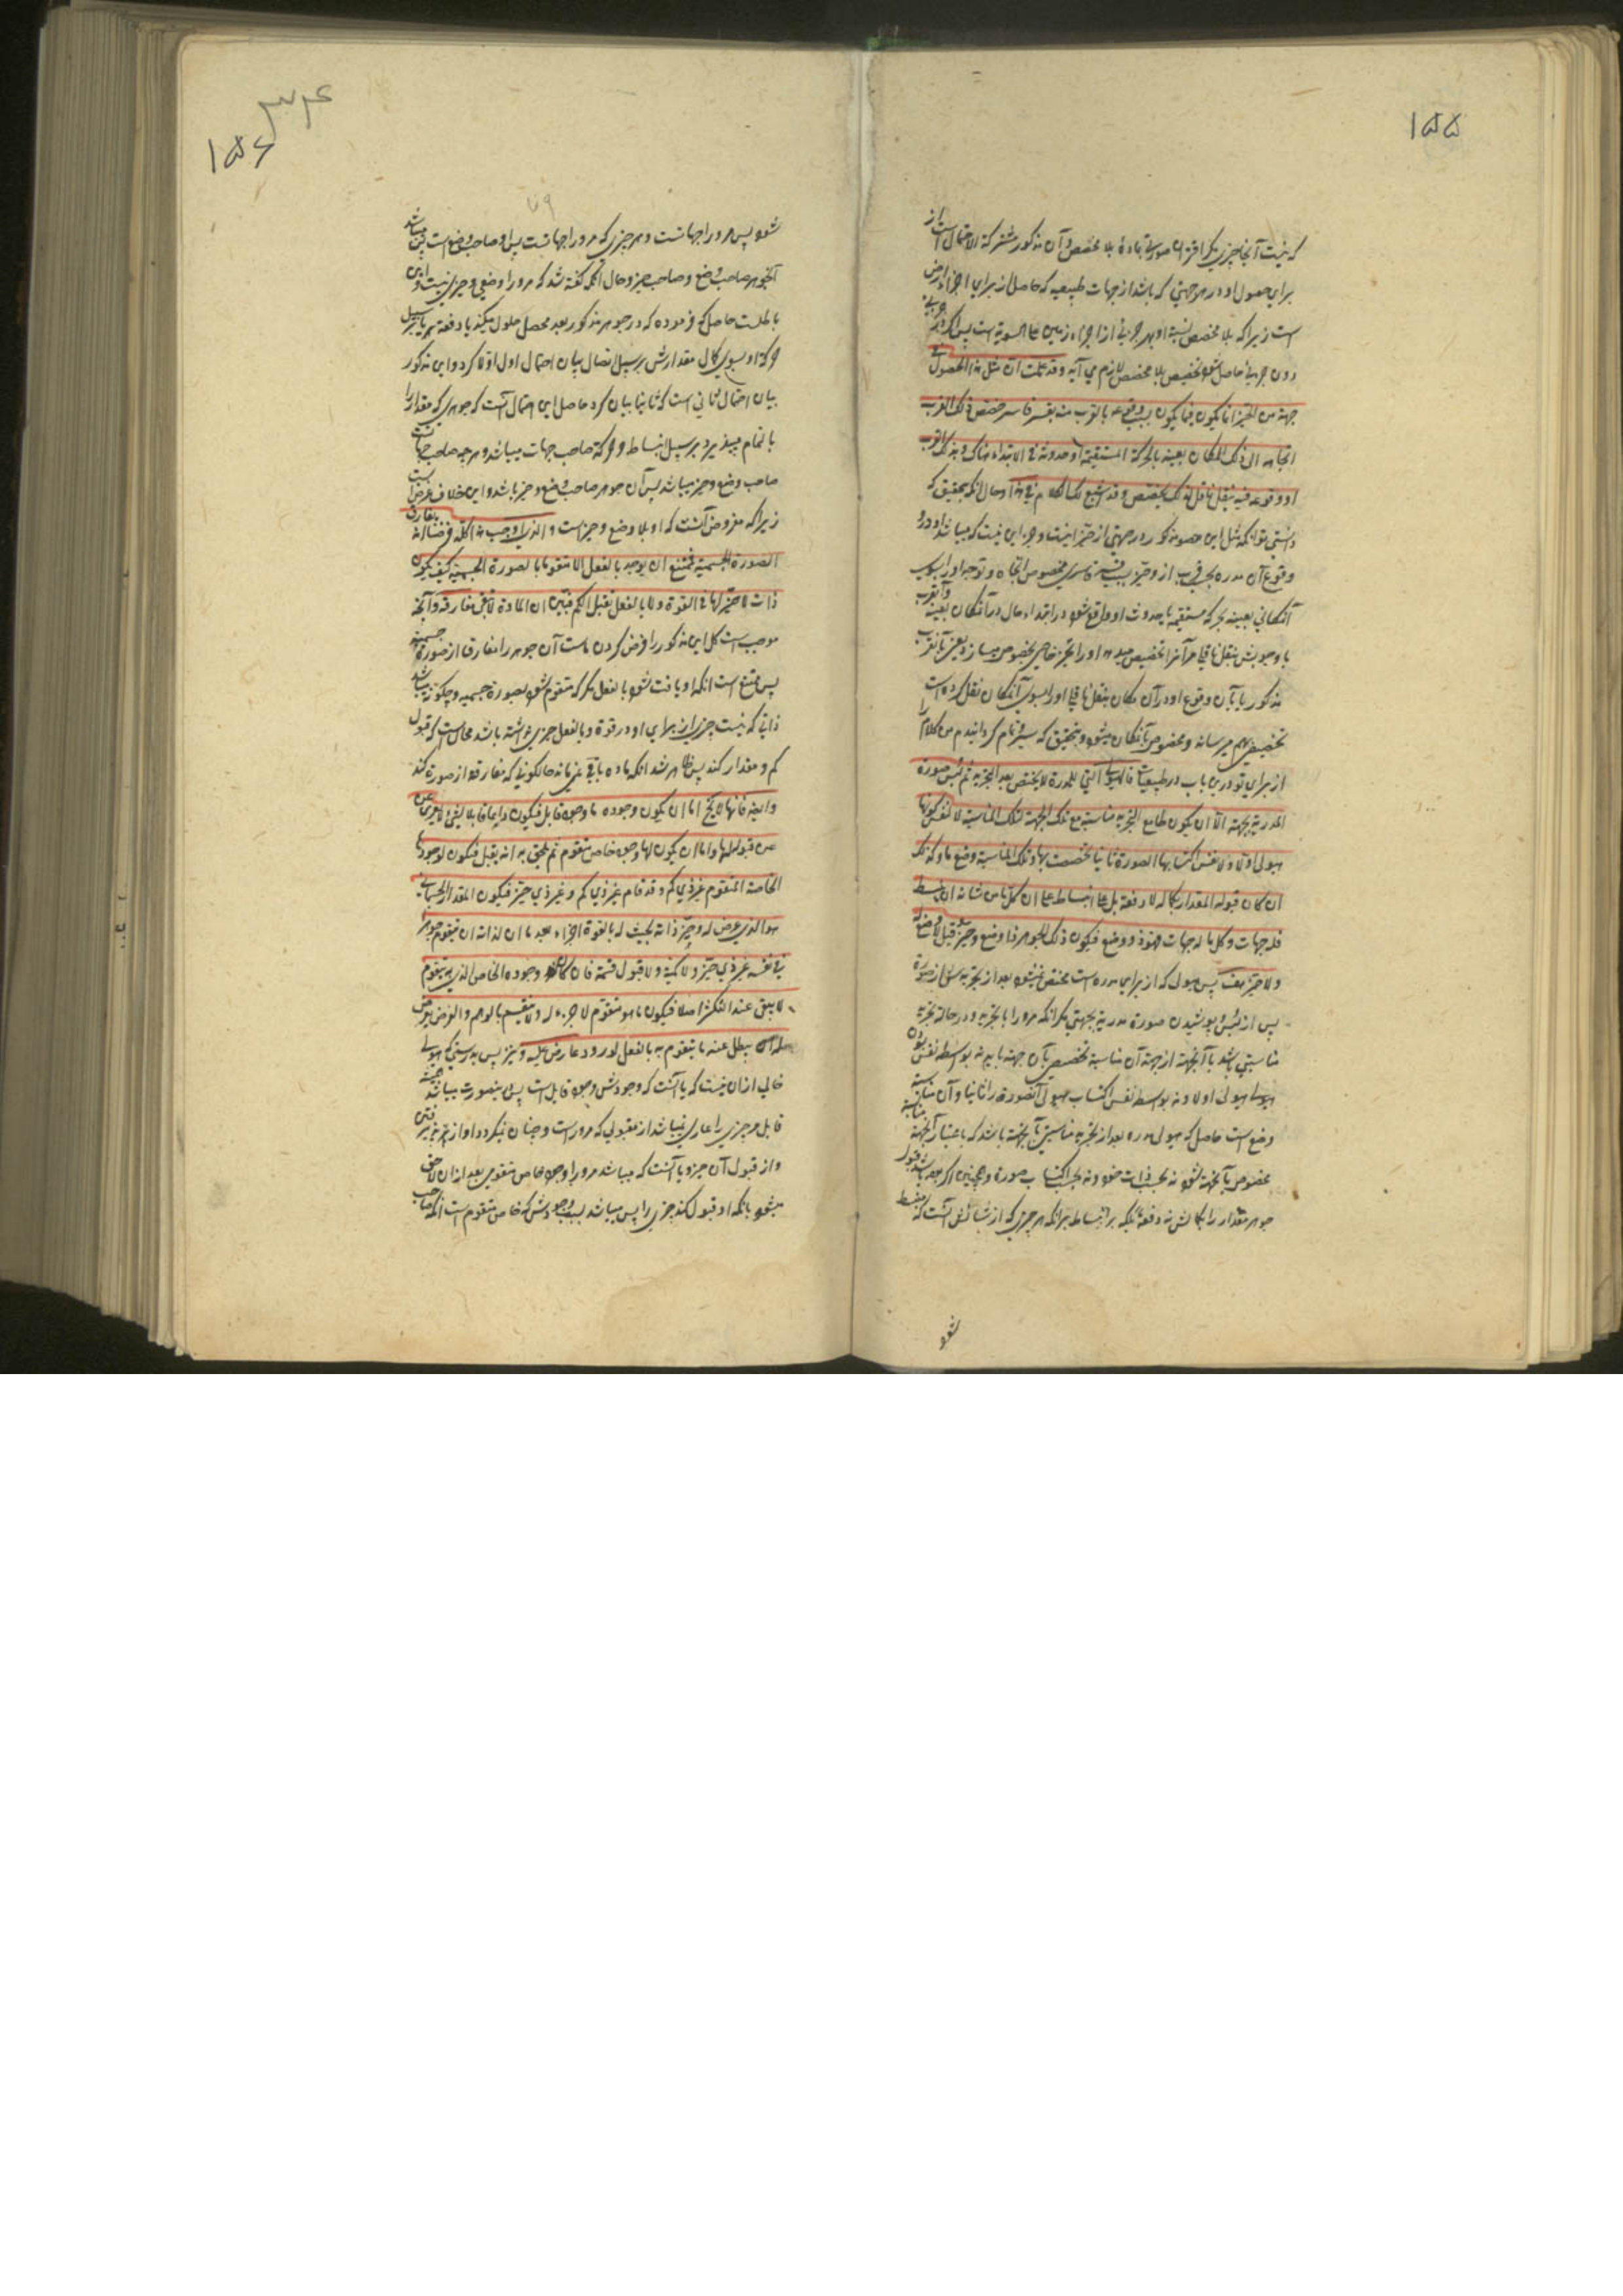 ۱۵۵
که نیست آنجا چیزی مگر اقتران صورتی بماده بلا مخصص و آن مذکور مشترکة الاحتمال است از
برای حصول او در هر جهتی که باشد از جهات طبیعیه که حاصل از برای اجزاء ارض
است زیرا که بلا مخصص نسبة او بهر جزئی از اجزاء زمین علی السویة است پس اگر در جزئی
دون جزئی حاصل شود تخصیص بلا مخصص لازم می آید وقد علمت ان مثل هذا الحصول فی
جهة من الحیز انما یکون فیما یکون بسبب وقوعه بالقرب منه بقسر قاسر خصص ذلک القرب
اتجاهه الی ذلک المکان بعینه بالحرکة المستقیمة او حدوثه فی الابتداء هناک و بذلک القرب
او وقوعه فیه بنقل ناقل لذلک تخصص وقد اشبع لک الکلام فی هذا وحال آنکه بتحقیق که
دانستی تو آنکه مثل این حصول مذکور در جهتی از حیز اینست و جز این نیست که میباشد او در
وقوع آن مدره بحسب قرب از و حیز بسبب قسر قاسری مخصوص اتجاه و توجه او را بسوی
آنمکانی بعینه بحرکة مستقیمه یا بحدوث او و واقع شود در ابتداء حال در آنمکان بعینه و آنقرب
یا وجودش بنقل ناقلی مر آنرا تخصیص میدهد او را بحیز خاصی بخصوص میسازد یعنی بآنقرب
مذکور یا بآن وقوع او در آن مکان بنقل ناقلی او را بسوی آنمکان نقل کرده است
تخصیص بهم میرساند و مخصوص بآنمکان میشود و بتحقیق که سیر تمام گردانیدم من کلام را
از برای تو درین باب در طبیعیات فالهیولی التی للمدرة لا یختص بعد التجرید ثم لبس صورة
المدریة بجهة الا ان یکون لها مع التجرید مناسبة مع تلک الجهة لتلک المناسبة لا لنفس کونها
هیولی اولا ولا نفس اکتسابها الصورة ثانیا تخصصت بها و تلک المناسبة وضع ما و کذلک
ان کان قبوله المقدار بکماله لا دفعة بل علی انبساط علی ان کل ما من شانه ان ینبسط
فله جهات و کل ما له جهات فهو ذو وضع فیکون ذلک الجوهر ذا وضع و حیز و قیل لا وضع له
ولا حیز هف پس هیولی که از برای مدره است مختص نمیشود بعد از تجرید سابق از صورة
پس از لبس و پوشیدن صورة مدریة بجهتی مگر آنکه مر و را با تجرید و در حالة تجرید
مناسبتی باشد با آنجهته از جهته آن مناسبة تخصیص بآن جهته یابد نه بواسطه نفس بودن
هیولی هیولی اولا و نه بواسطه نفس اکتساب هیولی آنصورة را ثانیا و آن مناسبة
وضع است حاصل که هیولی مدره بعد از تجرید مناسبتی بآنجهته باشد که باعتبار آنجهته مناسبة
مخصوص بآنجهته شود نه بحسب ذات خود و نه بحسب اکتساب صورة و همچنین اگر بوده باشد قبول
جوهر مقدار را بکمالش نه دفعة بلکه بر انبساط بر آنکه هر چیزی که از شانش آنست که منبسط
شود
۳۴۶
۱۵۶
۷۹
شود پس مر و را جهاتست و هر چیزی که مر و را جهاتست پس او صاحب وضع است پس میباشد
آنجوهر صاحب وضع و صاحب حیز و حال آنکه گفته شد که مر و را وضعی و حیزی نیست و این
باطلست حاصل که فرموده که در جوهر مذکور بعد محصل حلول میکند یا دفعة یا بر سبیل
حرکة او بسوی کمال مقدارش بر سبیل اتصال بیان احتمال اول اولا کرد و این مذکور
بیان احتمال ثانی است که ثانیا بیان کرد حاصل این احتمال آنست که جوهری که مقدار را
باتمام میپذیرد بر سبیل انبساط و حرکة صاحب جهات میباشد و هر چه صاحب جهاتست
صاحب وضع و حیز میباشد پس آن جوهر صاحب وضع و حیز باشد و این خلاف فرض است
زیرا که مفروض آنست که او بلا وضع و حیز است والذی اوجب هذا کله فرضنا انه یفارق
الصورة الجسمیة فیمتنع ان یوجد بالفعل الا متقوما بالصورة الجسمیة کیف یکون
ذات لا حیز لها فی القوة ولا بالفعل تقبل الکم فتبین ان المادة لا تبقی مفارقة و آنچه
موجب است کل این مذکور را فرض کردن ماست آن جوهر را مفارق از صورة جسمیه
پس ممتنع است آنکه او یافت شود بالفعل مگر که متقوم شود بصورة جسمیه و چگونه میباشد
ذاتی که نیست چیزی از برای او در قوة و بالفعل حیزی نداشته باشد محال است که قبول
کم و مقدار کند پس ظاهر شد آنکه ماده باقی نمیماند حالکونی که مفارقة از صورة کند
وایضا فانها لا یخ اما ان یکون وجوده ما وجود قابل فیکون دایما قابلا لشئ لا یعری عن
عن قبوله لها و اما ان یکون لها وجود خاص متقوم ثم یلحق به انه یقبل فیکون لوجودها
الخاصة المتقوم غیر ذی کم وقد قام غیر ذی کم و غیر ذی حیز فیکون المقدار الجسمانی
هو الذی عرض له و صیر ذاته بحیث له بالقوة اجزاء بعد ما ان لذاته ان یتقوم جوهرا
فی نفسه غیر ذی حیز ولا کمیة ولا قبول قسمة فان کان وجوده الخاص الذی به یتقوم
لا یبقی عند التکثر اصلا فیکون ما هو متقوم لا جزء له ولا ینقسم بالوهم والفرض یعرض
له ان یبطل عنه ما یتقوم به بالفعل لورود عارض علیه و نیز پس بدرستی که هیولی
خالی ازان نیست که یا آنست که وجودش وجود قابل است پس بنیصورت میباشد همیشه
قابل هر چیزی را عاری نمیباشد از مقبولی که مر و راست و چنان نمیگردد او از پذیرفتن
و از قبول آن جزء و یا آنست که میباشد مر و را وجود خاص متقومی بعد ازان لاحق
میشود بآنکه او قبول کند چیزی را پس میباشد بسبب وجودش که خاص متقوم است آنکه صاحب